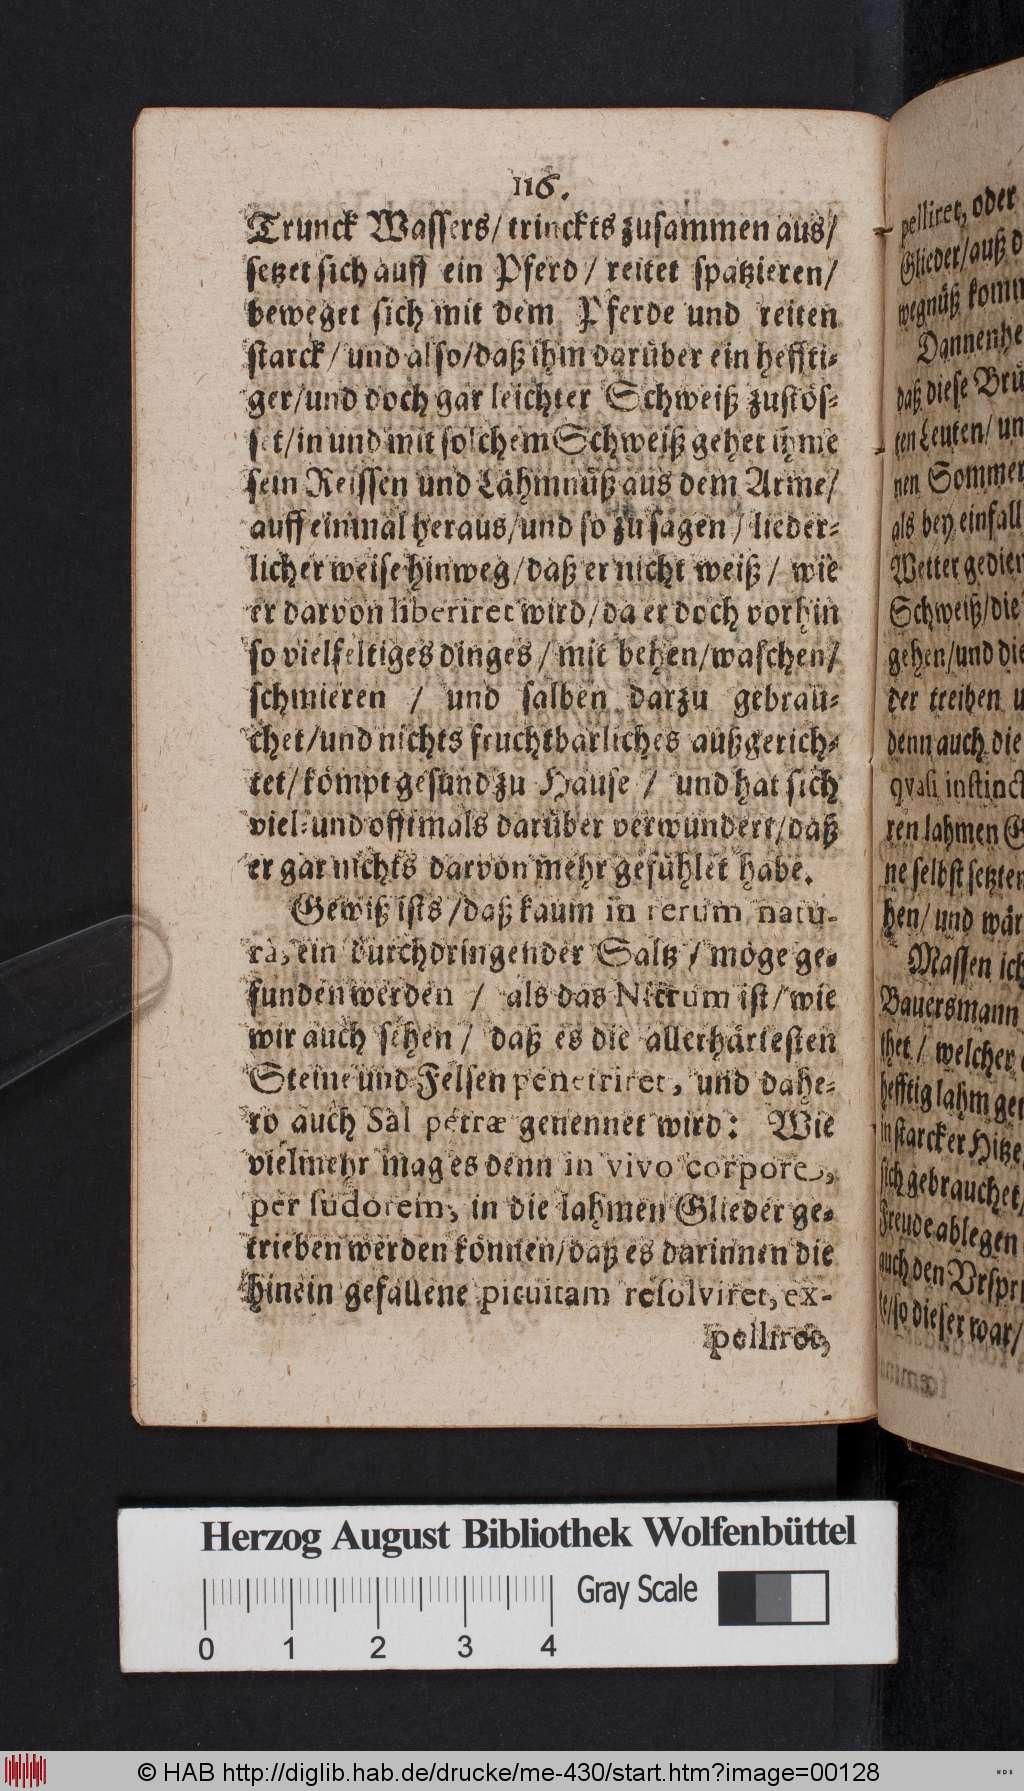 116.
Trunck Wassers/ trinckts zusammen aus/
setzet sich auff ein Pferd / reitet spatzieren/
beweget sich mit dem Pferde und reiten
starck / und also/daß ihm darüber ein heffti-
ger/und doch gar leichter Schweiß zustös-
set/in und mit solchem Schweiß gehet ihme
sein Reissen und Lähmnüß aus dem Arme/
auff einmal heraus/und so zu sagen / lieder-
licher weise hinweg/daß er nicht weiß / wie
er darvon liberiret wird/da er doch vorhin
so vielfeltiges dinges / mit behen/waschen/
schmieren / und salben darzu gebrau-
chet/und nichts fruchtbarliches außgerich-
tet/kömpt gesund zu Hause / und hat sich
viel-und offtmals darüber verwundert/daß
er gar nichts darvon mehr gefühlet habe.
Gewiß ists/daß kaum in rerum natu-
ra, ein durchdringender Saltz / möge ge-
funden werden / als das Nitrum ist/wie
wir auch sehen / daß es die allerhärtesten
Steine und Felsen penetriret, und dahe-
ro auch Sal petræ genennet wird: Wie
vielmehr mag es denn in vivo corpore,
per sudorem, in die lahmen Glieder ge-
trieben werden können/daß es darinnen die
hinein gefallene pituitam resolviret, ex-
pelliret,
pelliret, oder
Glieder/auß d
wegnüß komm
Dannenhe
daß diese Brü
ten Leuten/ un
nen Sommer
als bey einfall
Wetter gedien
Schweiß/die
gehen/und die
der treiben u
denn auch die
qvasi instinct
ren lahmen G
ne selbst setzten
hen/ und wär
Massen ich
Bauersmann
thet / welcher
hefftig lahm ge
in starcker Hitze
sich gebrauchet/
Freude ablegen
auch den Vrspr
te/so dieser war/
Herzog August Bibliothek Wolfenbüttel
Gray Scale
0 1 2 3 4
© HAB http://diglib.hab.de/drucke/me-430/start.htm?image=00128